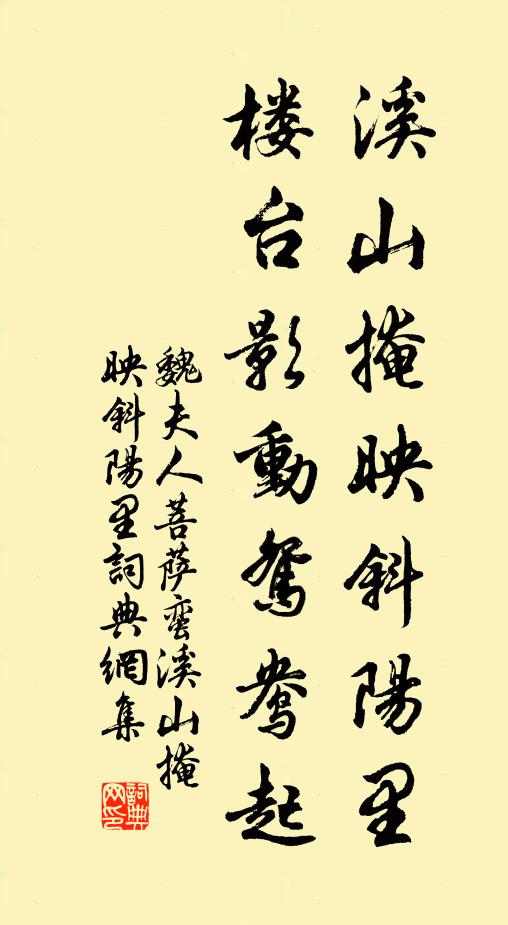 溪山掩映斜陽里
楼台影動鴛鴦起
魏夫人菩萨蛮溪山掩
映斜陽里詞典網集
詞典
网印